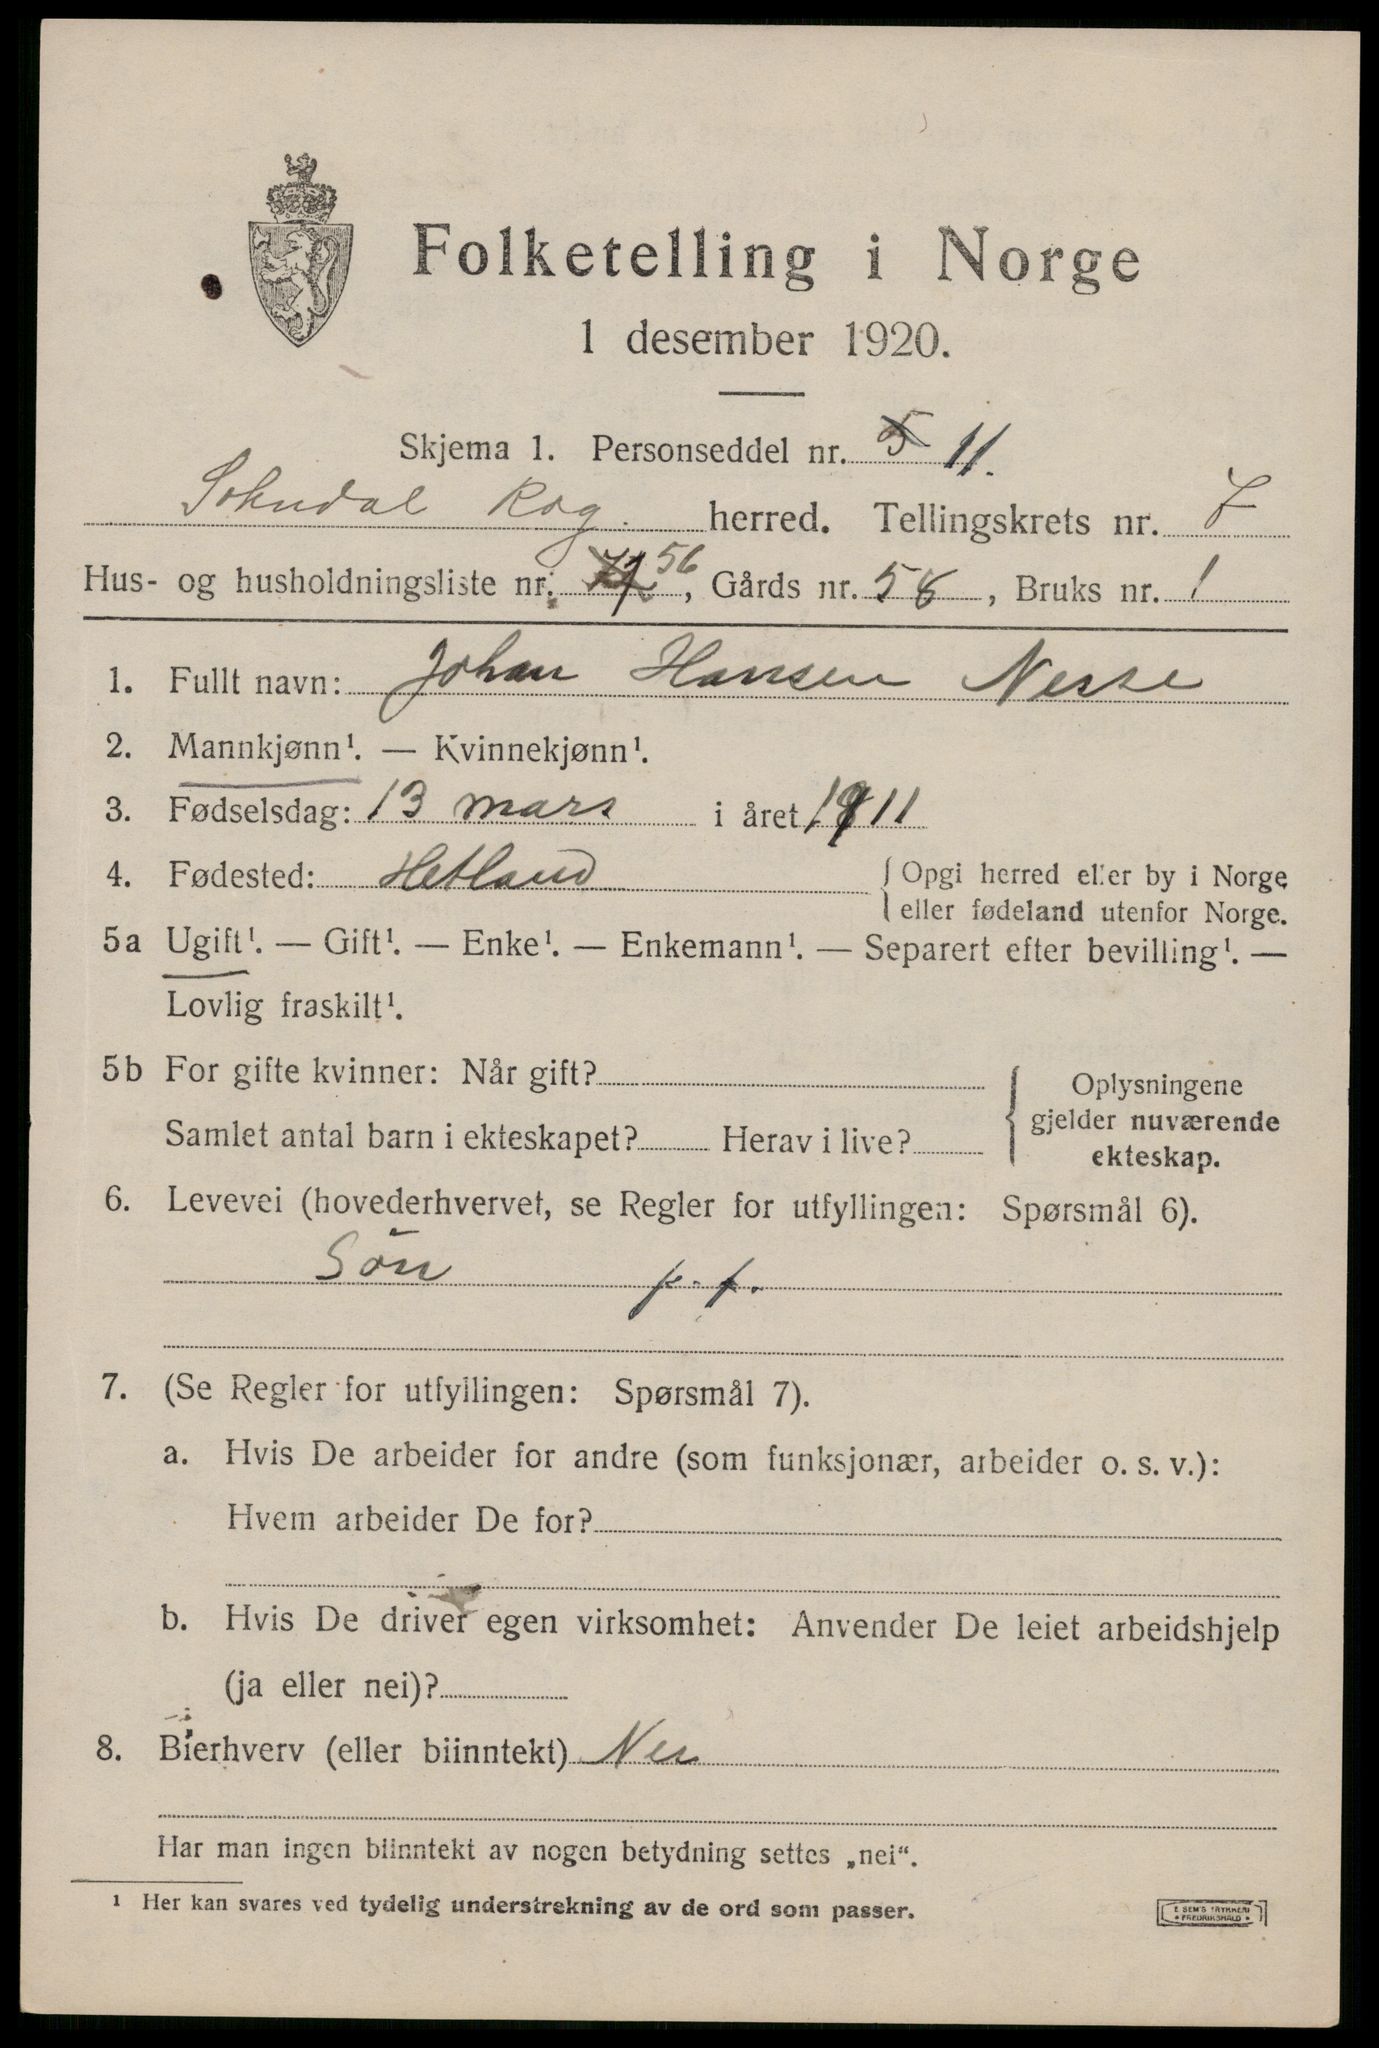 Folketelling i Norge
1 desember 1920.
Skjema 1. Personseddel nr. 5 11.
Sokndal Rog. herred. Tellingskrets nr. 7
Hus- og husholdningsliste nr. 56, Gårds nr. 58, Bruks nr. 1
1. Fullt navn: Johan Hansen Nesse
2. Mannkjønn¹. — Kvinnekjønn¹.
3. Fødselsdag: 13 mars i året 1911
4. Fødested: Hetland { Opgi herred eller by i Norge
eller fødeland utenfor Norge.
5a Ugift¹. — Gift¹. — Enke¹. — Enkemann¹. — Separert efter bevilling¹. —
Lovlig fraskilt¹.
5b For gifte kvinner: Når gift? { Oplysningene
Samlet antal barn i ekteskapet? Herav i live? gjelder nuværende
ekteskap.
6. Levevei (hovederhvervet, se Regler for utfyllingen: Spørsmål 6).
Sön f. f.
7. (Se Regler for utfyllingen: Spørsmål 7).
a. Hvis De arbeider for andre (som funksjonær, arbeider o. s. v.):
Hvem arbeider De for?
b. Hvis De driver egen virksomhet: Anvender De leiet arbeidshjelp
(ja eller nei)?
8. Bierhverv (eller biinntekt) Nei
Har man ingen biinntekt av nogen betydning settes „nei“.
¹ Her kan svares ved tydelig understrekning av de ord som passer.
E SEM'S TRYKKERI
FREDRIKSHALD